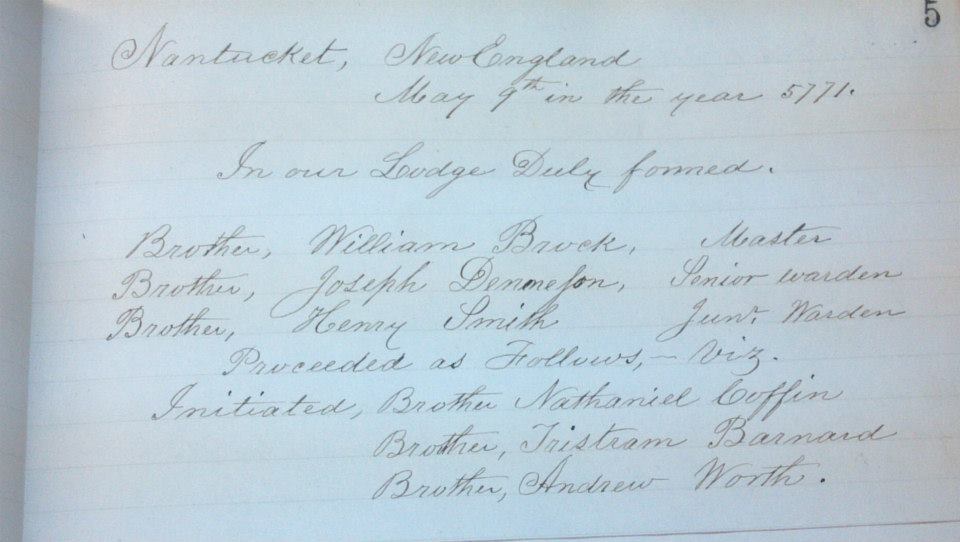 5
Nantucket, New England
May 9th in the year 5771.
In our Lodge Duly formed.
Brother, William Brock, Master
Brother, Joseph Denneſon, Senior warden
Brother, Henry Smith Junr. Warden
Proceeded as Follows, – Viz.
Initiated, Brother Nathaniel Coffin
Brother, Tristram Barnard
Brother, Andrew Worth.